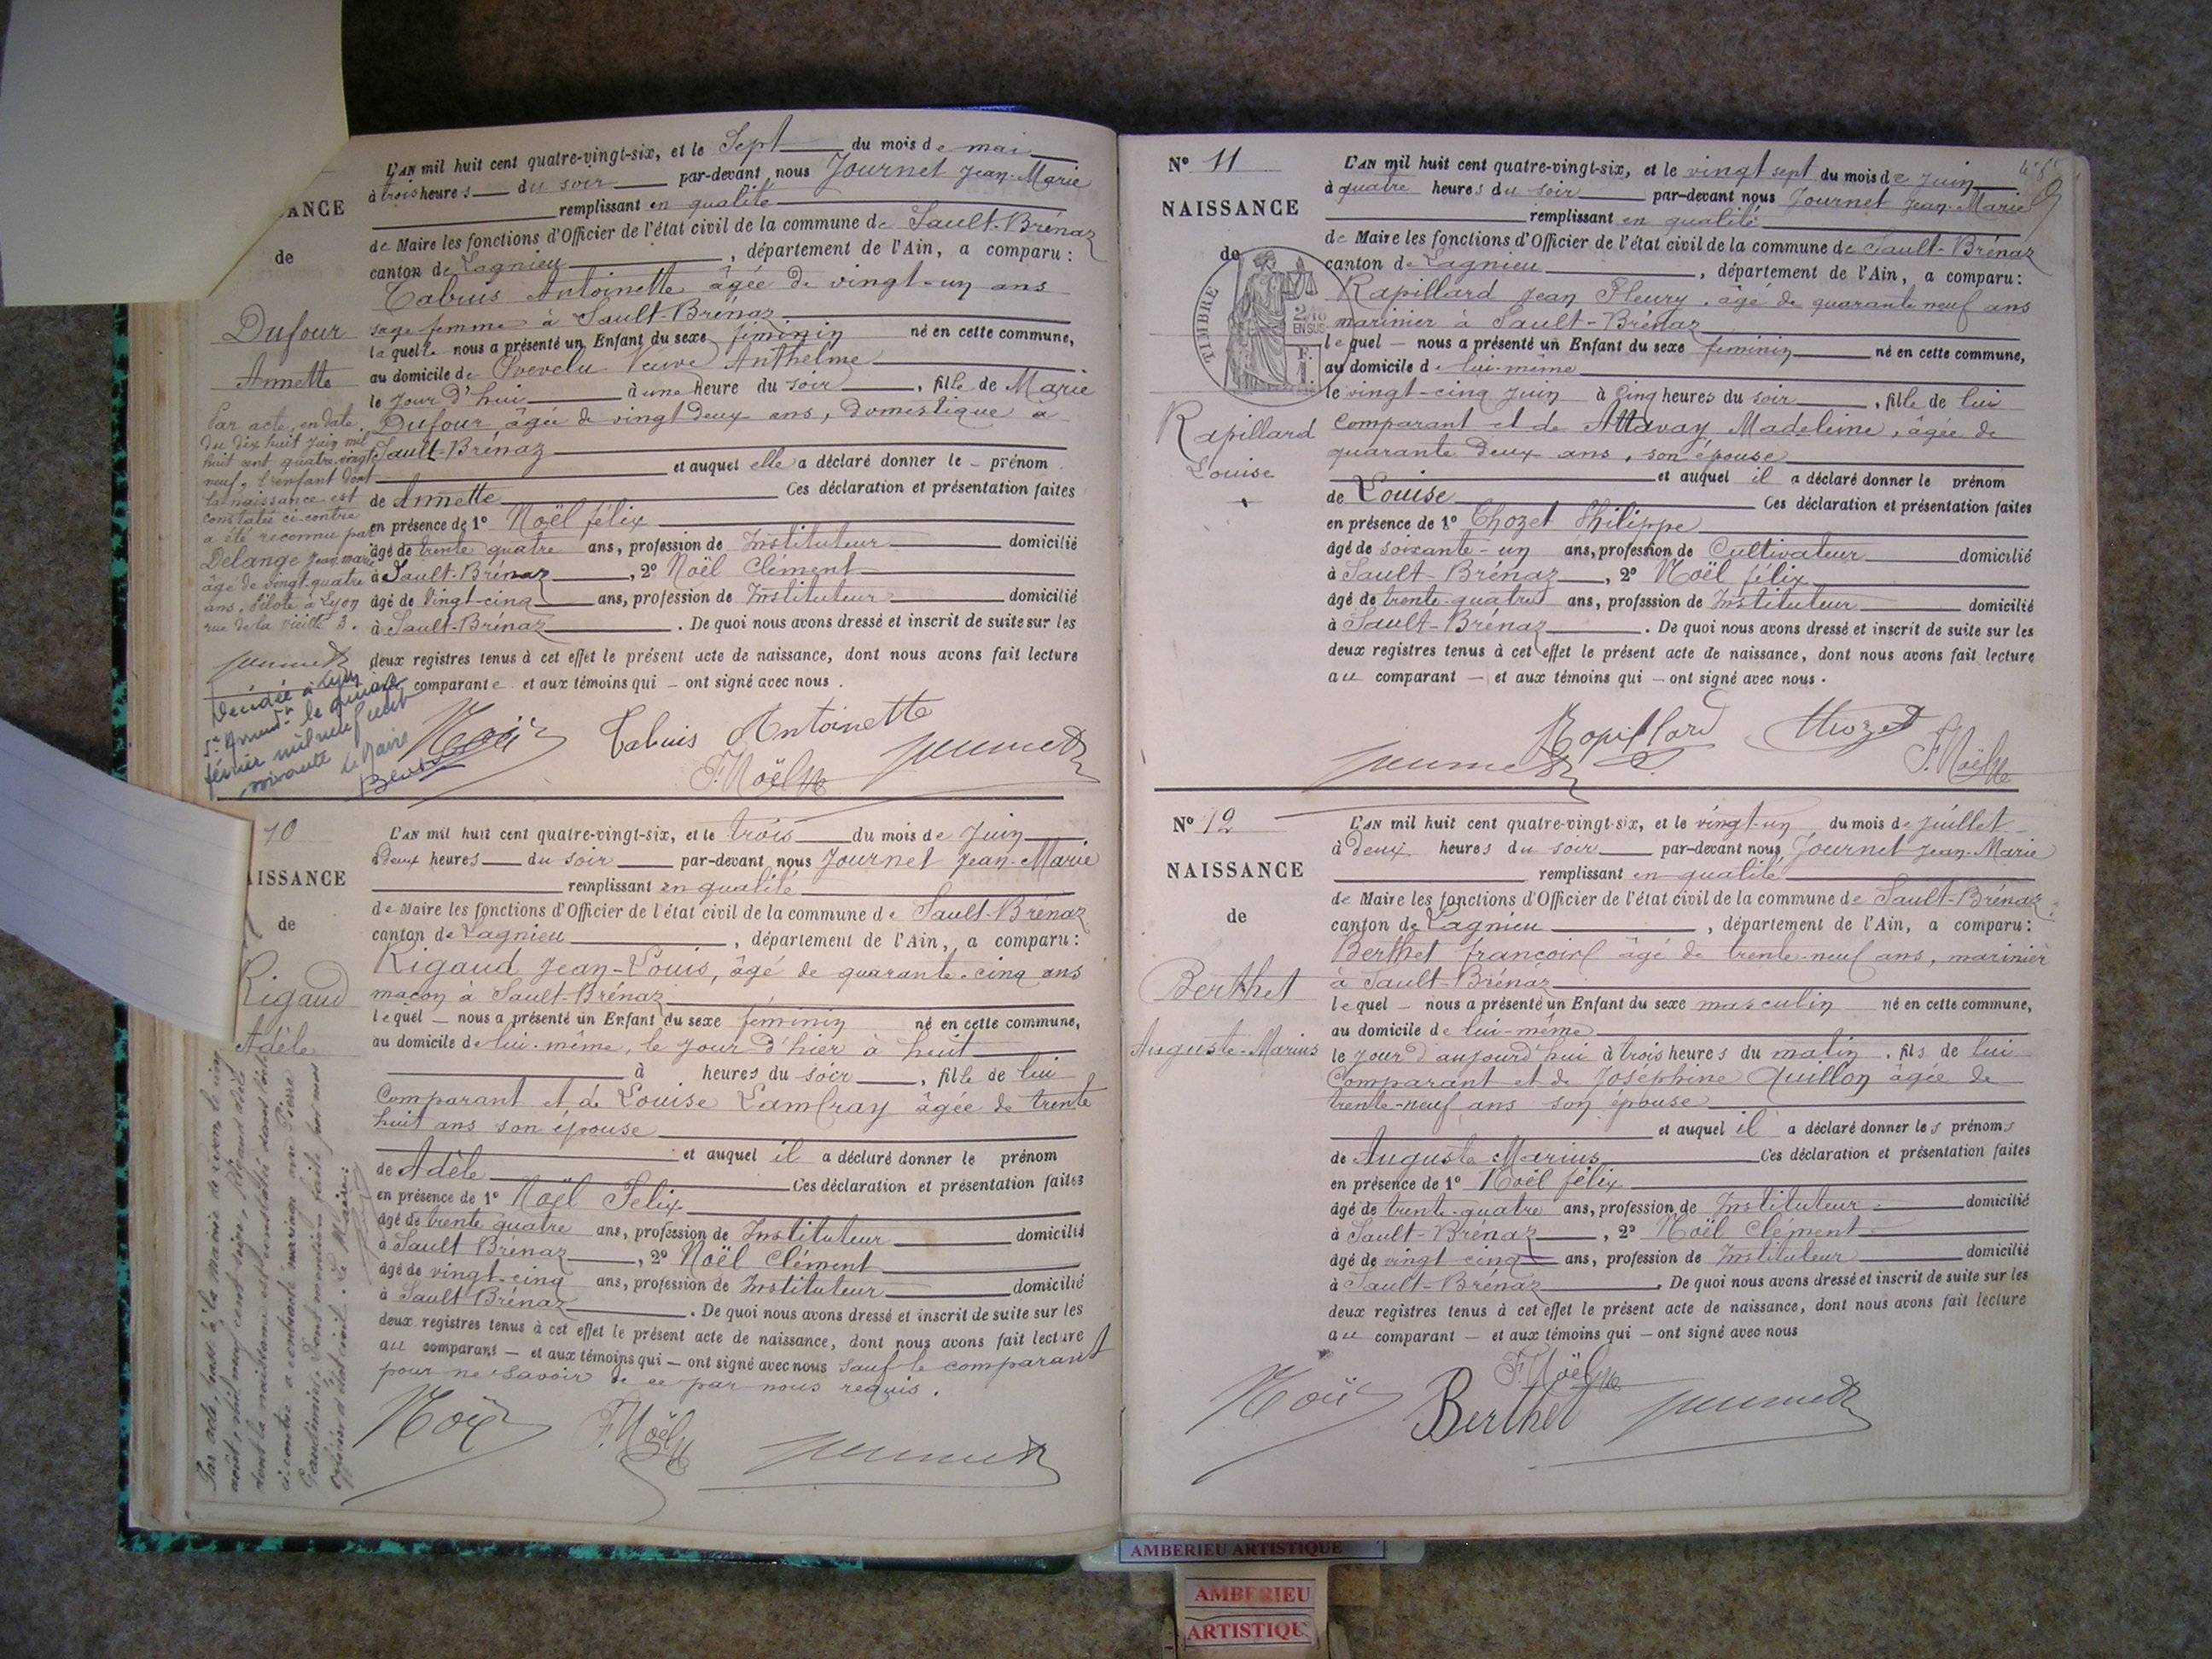 L'AN mil huit cent quatre-vingt-six, et le Sept du mois de mai
à trois heures du soir par-devant nous Journet Jean-Marie
remplissant en qualité
de Maire les fonctions d'Officier de l'état civil de la commune de Sault-Brénaz
canton de Lagnieu, département de l'Ain, a comparu :
Tabuis Antoinette âgée de vingt-un ans
sage-femme à Sault-Brénaz
laquelle nous a présenté un Enfant du sexe féminin né en cette commune,
au domicile de Veuve Anthelme
le jour d'hui à une heure du soir, fille de Marie
Dufour âgée de vingt deux ans, domestique à
Sault-Brénaz
et auquel elle a déclaré donner le prénom
de Annette Ces déclaration et présentation faites
en présence de 1° Noël félix
âgé de trente quatre ans, profession de Instituteur domicilié
à Sault-Brénaz, 2° Noël Clément
âgé de Vingt-cinq ans, profession de Instituteur domicilié
à Sault-Brénaz. De quoi nous avons dressé et inscrit de suite sur les
deux registres tenus à cet effet le présent acte de naissance, dont nous avons fait lecture
comparante et aux témoins qui ont signé avec nous.
Tabuis Antoinette
F. Noël
ANCE
de
Dufour
Annette
Par acte, en date
du dix huit juin mil
huit cent quatre-vingt
neuf, l'enfant dont
la naissance est
constatée ci-contre
a été reconnu par
Delange Jean-Marie
âgé de vingt-quatre
ans, pilote à Lyon
rue de la vieille 3.
Décédée à
le quinze
février mil neuf cent
soixante
Le Maire
10
ISSANCE
de
Rigaud
Adèle
L'AN mil huit cent quatre-vingt-six, et le trois du mois de Juin
à deux heures du soir par-devant nous Journet Jean-Marie
remplissant en qualité
de Maire les fonctions d'Officier de l'état civil de la commune de Sault-Brénaz
canton de Lagnieu, département de l'Ain, a comparu :
Rigaud Jean-Louis, âgé de quarante-cinq ans
maçon à Sault-Brénaz
lequel nous a présenté un Enfant du sexe féminin né en cette commune,
au domicile de lui-même, le jour d'hier à huit
à heures du soir, fille de lui
Comparant et de Louise Lamfray âgée de trente
huit ans son épouse
et auquel il a déclaré donner le prénom
de Adèle Ces déclaration et présentation faites
en présence de 1° Noël Felix
âgé de trente quatre ans, profession de Instituteur domicilié
à Sault Brénaz, 2° Noël Clément
âgé de vingt-cinq ans, profession de Instituteur domicilié
à Sault Brénaz. De quoi nous avons dressé et inscrit de suite sur les
deux registres tenus à cet effet le présent acte de naissance, dont nous avons fait lecture
au comparant et aux témoins qui ont signé avec nous sauf le comparant
pour ne savoir de ce par nous requis.
F. Noël
N° 11
NAISSANCE
de
TIMBRE
2/10
EN SUS
Rapillard
Louise
L'AN mil huit cent quatre-vingt-six, et le vingt sept du mois de juin
à quatre heures du soir par-devant nous Journet Jean-Marie
remplissant en qualité
de Maire les fonctions d'Officier de l'état civil de la commune de Sault-Brénaz
canton de Lagnieu, département de l'Ain, a comparu :
Rapillard Jean Fleury, âgé de quarante neuf ans
marinier à Sault-Brénaz
lequel nous a présenté un Enfant du sexe féminin né en cette commune,
au domicile de lui-même
le vingt-cinq juin à Cinq heures du soir, fille de lui
Comparant et de Attavay Madeleine, âgée de
quarante deux ans, son épouse
et auquel il a déclaré donner le prénom
de Louise Ces déclaration et présentation faites
en présence de 1° Thozet Philippe
âgé de soixante-un ans, profession de Cultivateur domicilié
à Sault-Brénaz, 2° Noël félix
âgé de trente-quatre ans, profession de Instituteur domicilié
à Sault-Brénaz. De quoi nous avons dressé et inscrit de suite sur les
deux registres tenus à cet effet le présent acte de naissance, dont nous avons fait lecture
au comparant et aux témoins qui ont signé avec nous.
Rapillard Thozet
F. Noël
N° 12
NAISSANCE
de
Berthet
Auguste-Marius
L'AN mil huit cent quatre-vingt-six, et le vingt-un du mois de juillet
à deux heures du soir par-devant nous Journet Jean-Marie
remplissant en qualité
de Maire les fonctions d'Officier de l'état civil de la commune de Sault-Brénaz
canton de Lagnieu, département de l'Ain, a comparu :
Berthet françois âgé de trente-neuf ans, marinier
à Sault-Brénaz
lequel nous a présenté un Enfant du sexe masculin né en cette commune,
au domicile de lui-même
le jour d'aujourd'hui à trois heures du matin, fils de lui
Comparant et de Joséphine Quillon âgée de
trente-neuf ans son épouse
et auquel il a déclaré donner les prénoms
de Auguste Marius Ces déclaration et présentation faites
en présence de 1° Noël félix
âgé de trente-quatre ans, profession de Instituteur domicilié
à Sault-Brénaz, 2° Noël Clément
âgé de vingt cinq ans, profession de Instituteur domicilié
à Sault-Brénaz. De quoi nous avons dressé et inscrit de suite sur les
deux registres tenus à cet effet le présent acte de naissance, dont nous avons fait lecture
au comparant et aux témoins qui ont signé avec nous
F. Noël
Berthet
AMBERIEU ARTISTIQUE
AMBERIEU
ARTISTIQU